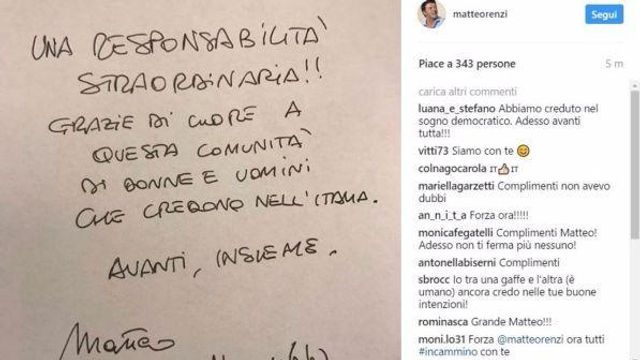 UNA RESPONSABILITÀ
STRAORDINARIA!!
GRAZIE DI CUORE A
QUESTA COMUNITÀ
DI DONNE E UOMINI
CHE CREDONO NELL'ITALIA.
AVANTI, INSIEME.
Matteo
matteorenzi
Segui
Piace a 343 persone
5 m
carica altri commenti
luana_e_stefano Abbiamo creduto nel
sogno democratico. Adesso avanti
tutta!!!
vitti73 Siamo con te 😊
colnagocarola IT👍🏻IT
mariellagarzetti Complimenti non avevo
dubbi
an_n_i_t_a Forza ora!!!!!
monicafegatelli Complimenti Matteo!
Adesso non ti ferma più nessuno!
antonellabiserni Complimenti
sbrocc Io tra una gaffe e l'altra (è
umano) ancora credo nelle tue buone
intenzioni!
rominasca Grande Matteo!!!
moni.lo31 Forza @matteorenzi ora tutti
#incammino con te